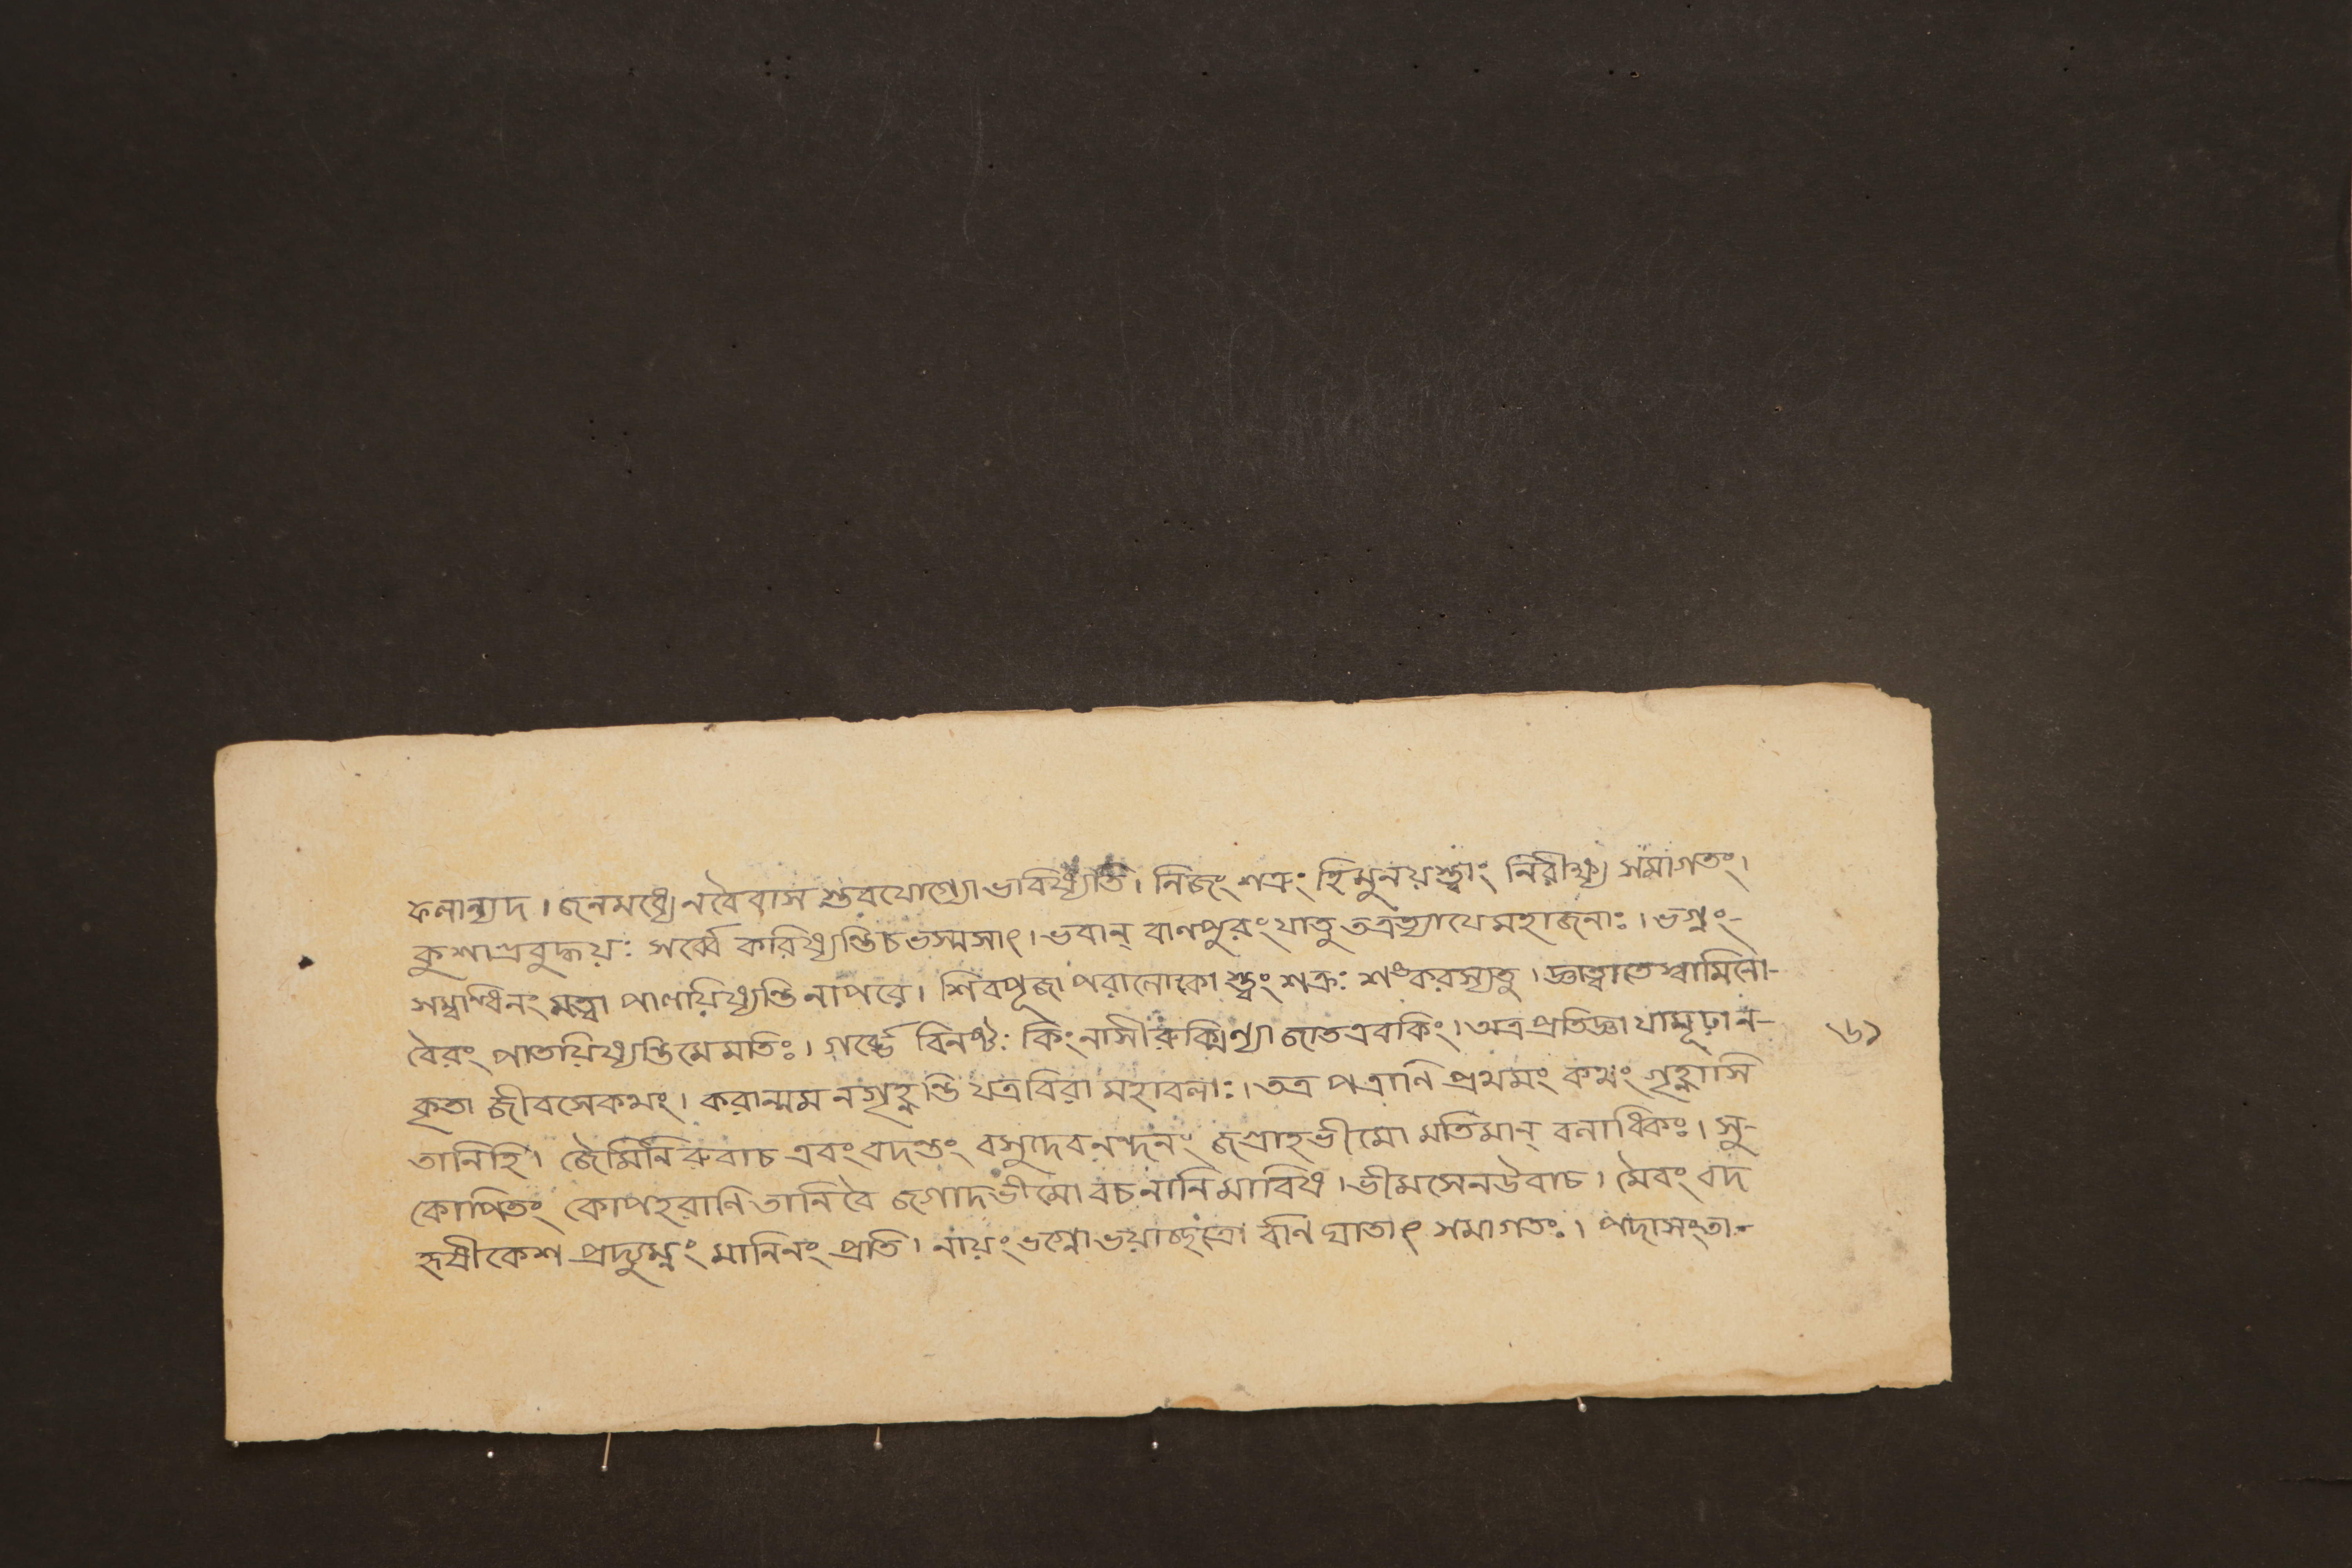 ফলান্যদ । জনমধ্যে নবৈবাস স্তবযোগ্যো ভাবিষ্যতি । নিজং শত্রুং হি মুনয়স্ত্বাং নিরীক্ষ্য সমাগতং ।
কুশাগ্রবুদ্ধয়ঃ সর্ব্বে করিষ্যন্তি চ ভস্মসাৎ । ভবান্ বাণপুরং যাতু তত্রত্যা যে মহাজনাঃ । ভগ্নং-
সম্বন্ধিনং মত্বা পালয়িষ্যন্তি নাপরে । শিবপূজাপরালোকা স্ত্বং শত্রুঃ শঙ্করস্যতু । জ্ঞাত্বা তে স্বামিনো-
বৈরং পাতয়িষ্যন্তি মে মতিঃ । গর্ব্ভে বিনষ্টঃ কিং নাসী রুক্মিণ্যা জাত এব কিং । অত্র প্রতিজ্ঞা যা মূঢ়া ন-
কৃতা জীবসে কথং । করান্মম ন গৃহ্নন্তি যত্র বিরা মহাবলাঃ । তত্র পত্রাণি প্রথমং কথং গৃহ্নাসি
তানি হি । জৈমিনিরুবাচ এবং বদন্তং বসুদেবনন্দনং জগ্রাহ ভীমো মতিমান্ বলাধিকঃ । সু-
কোপিতং কোপহরাণি তানি বৈ জগাদ ভীমো বচনানি মাবিথ । ভীমসেন উবাচ । মৈবং বদ
হৃষীকেশ প্রদ্যুম্নং মানিনং প্রতি । নায়ং ভগ্নো ভয়াচ্ছত্রো র্বাণ ঘাতাৎ সমাগতঃ । পদাসংতা-
৬১